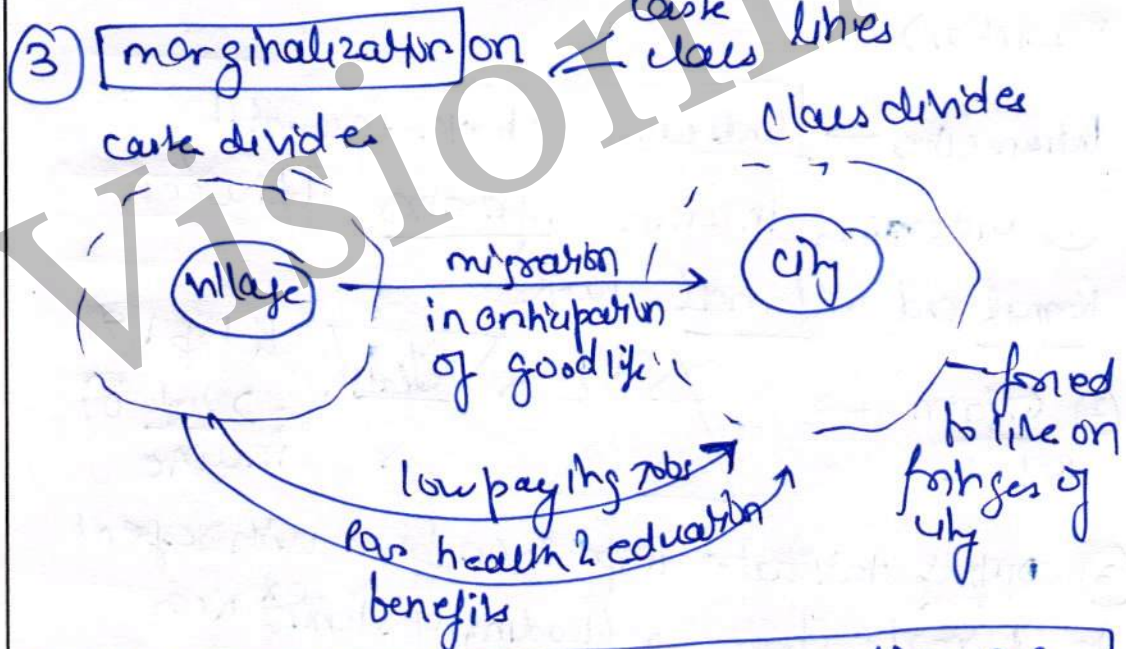 ③ marginalization on < caste
class lines
caste divides
class divides
village
migration
in anticipation
of good life
city
forced
to live on
fringes of
city
low paying jobs
less health & education
benefits
Vision